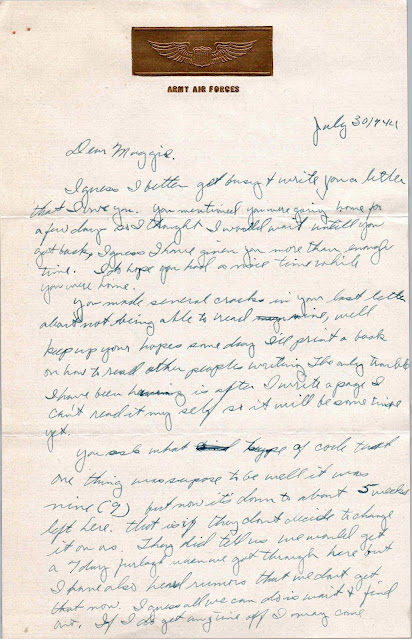 ARMY AIR FORCES
July 30/44
Dear Maggie.
I guess I better get busy & write you a letter
that I owe you. You mentioned you were going home for
a few days so I thought I would wait untill you
got back, I guess I have given you more than enough
time. I do hope you had a nice time while
you were home.
You made several cracks in your last letter
about not being able to read mine, well
keep up your hopes some day I'll print a book
on how to read other peoples writing. The only trouble
I have been having is after I write a page I
can't read it my self so it will be some time
yet.
You ask what type of code that
one thing was supose to be well it was
nine (9) but now it's down to about 5 weeks
left here. that is if they don't decide to change
it on us. They did tell us we would get
a 7 day furlough when we got through here but
I have also heard rumors that we don't get
that now. I guess all we can do is wait & find
out. If I do get any time off I may come